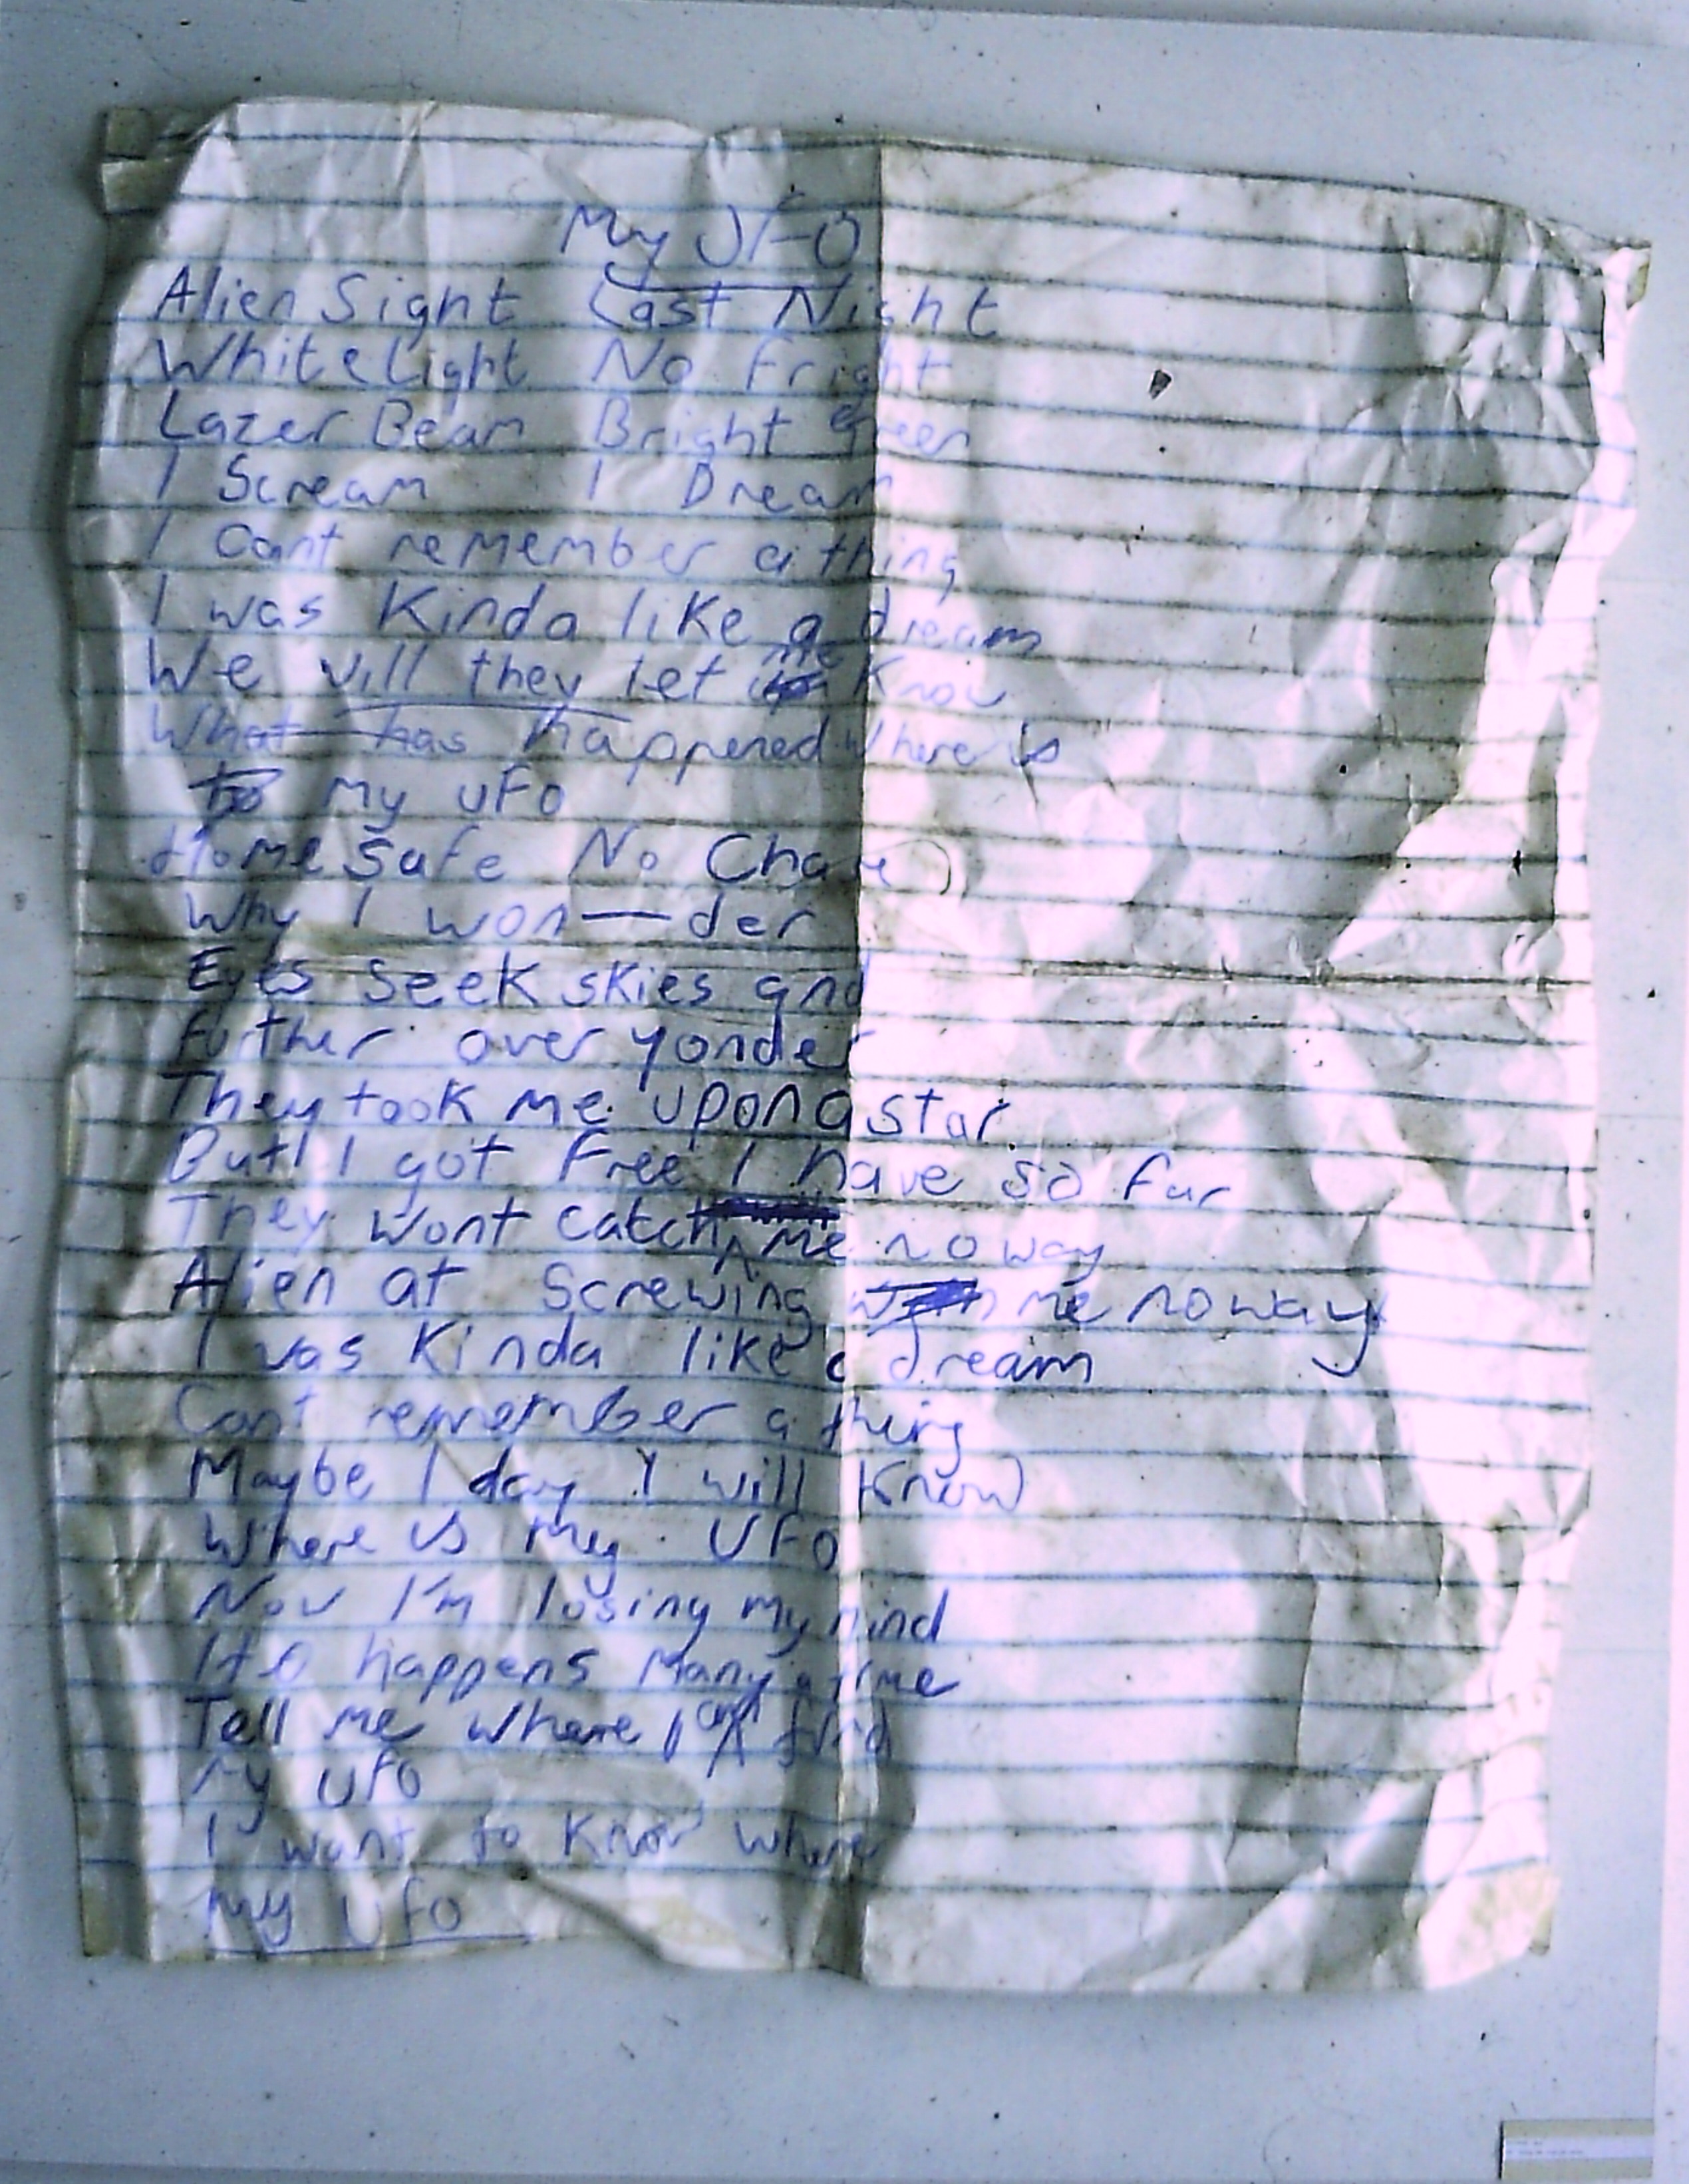 My UFO
Alien Sight Last Night
White Light No Fright
Lazer Beam Bright Green
I Scream I Dream
I Cant remember a thing
I was Kinda like a dream
We will they let me Know
What has happened where is
to my UFO
Home Safe No
Why I won—der
Eyes seek skies and
further over yonder
They took me upon a star.
But I I got Free I have so far
They wont catch me no way
Alien at Screwing me no way
I was Kinda like a dream
Cant remember a thing
Maybe 1 day I will Know
Where is my UFO
Now I'm losing my mind
It happens Many a time
Tell me where I can find
my UFO
I want to Know where
my UFO